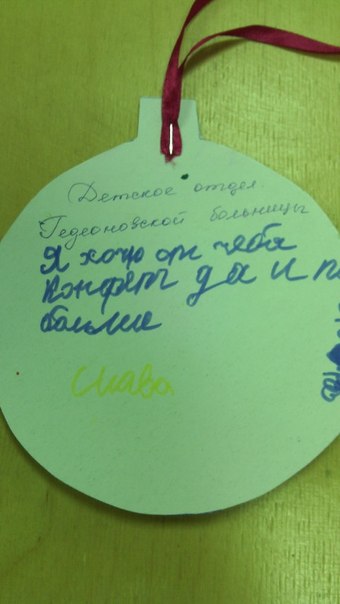 Детское отдел.
Гедеоновской больницы
Я хочу от тебя
Конфет да и п
больше
Слава